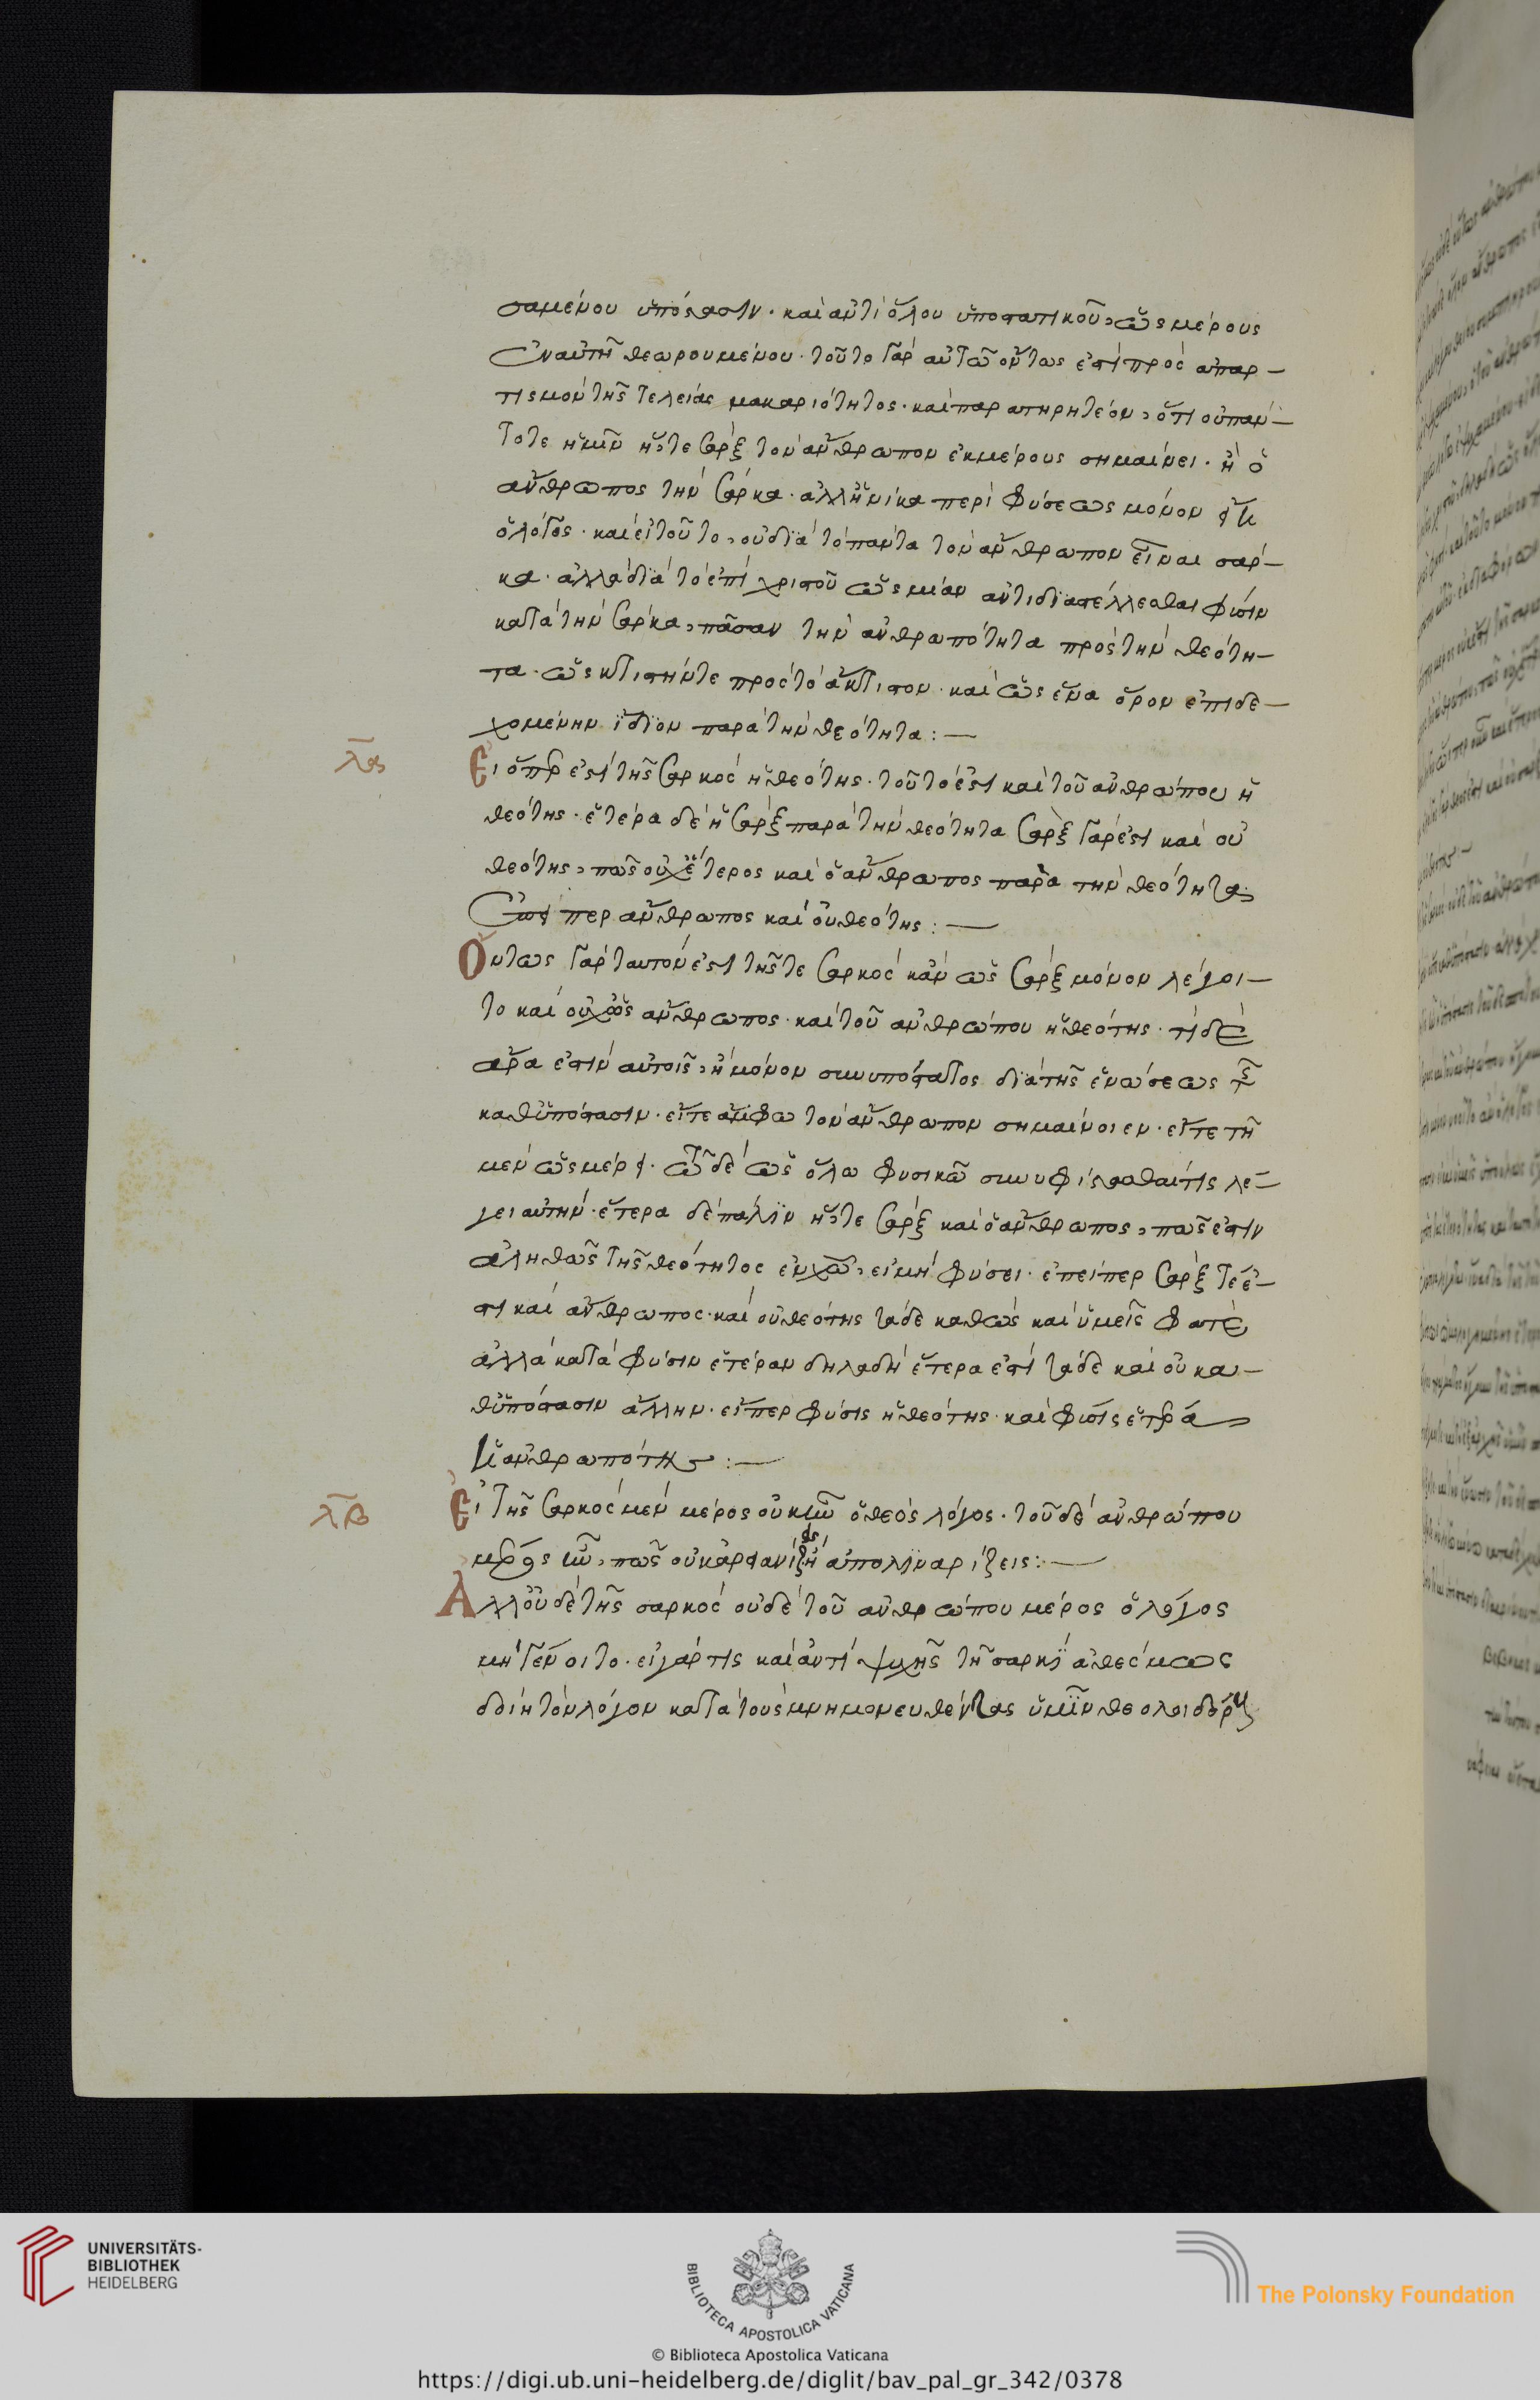 σαμένου ὑπόστασιν· καὶ ἀντὶ ὅλου ὑποστατικοῦ, ὡς μέρους
ἐν αὐτῇ θεωρουμένου· τοῦτο γὰρ αὐτῷ ὄντως ἐστὶ πρὸς ἀπαρ-
τισμὸν τῆς τελείας μακαριότητος· καὶ παρατηρητέον, ὅτι οὐ πάν-
τοτε ἡμῖν ἥ, τε σὰρξ τὸν ἄνθρωπον ἐκ μέρους σημαίνει· ἢ ὁ
ἄνθρωπος τὴν σάρκα· ἀλλ' ἡνίκα περὶ φύσεως μόνον
ὁ λόγος· καὶ εἰ τοῦτο, οὐ διὰ τὸ πάντα τὸν ἄνθρωπον εἶναι σάρ-
κα· ἀλλὰ διὰ τὸ ἐπὶ χριστοῦ ὡς μίαν ἀντιδιαστέλλεσθαι φύσιν
κατὰ τὴν σάρκα, πᾶσαν τὴν ἀνθρωπότητα πρὸς τὴν θεότη-
τα· ὡς κτιστήν τε πρὸς τὸ ἄκτιστον· καὶ ὡς ἕνα ὅρον ἐπιδε-
χομένην ἴδιον παρὰ τὴν θεότητα:-
λα
Εἰ ὅπερ ἐστὶ τῆς σαρκὸς ἡ θεότης· τοῦτό ἐστι καὶ τοῦ ἀνθρώπου ἡ
θεότης· ἑτέρα δὲ ἡ σὰρξ παρὰ τὴν θεότητα σὰρξ γάρ ἐστι καὶ οὐ
θεότης, πῶς οὐχ ἕτερος καὶ ὁ ἄνθρωπος παρὰ τὴν θεότητα,
περ ἄνθρωπος καὶ οὐ θεότης:-
Ὄντως γὰρ ταυτόν ἐστι τῆς τε σαρκὸς κἂν ὡς σὰρξ μόνον λέγοι-
το καὶ οὐχ ὡς ἄνθρωπος· καὶ τοῦ ἀνθρώπου ἡ θεότης· τί δὲ
ἄρα ἐστὶν αὐτοῖς, ἢ μόνον συνυπόστατος διὰ τῆς ἑνώσεως τῆς
καθ' ὑπόστασιν· εἴτε ἄμφω τὸν ἄνθρωπον σημαίνοιεν· εἴτε τῇ
μὲν ὡς μέρει· ᾧ δὲ ὡς ὅλῳ φυσικῷ συνυφίστασθαί τις λέ-
γει αὐτήν· ἕτερα δὲ πάλιν ἥ, τε σὰρξ καὶ ὁ ἄνθρωπος, πῶς ἐστὶν
ἀληθῶς τῆς θεότητος ἐν χῶ, εἰ μὴ φύσει· ἐπείπερ σὰρξ τέ ἐ-
στι καὶ ἄνθρωπος· καὶ οὐ θεότης τάδε καθὼς καὶ ὑμεῖς φατὲ
ἀλλὰ κατὰ φύσιν ἑτέραν δηλαδὴ ἕτερα ἐστὶ τάδε καὶ οὐ κα-
θ' ὑπόστασιν ἄλλην· εἴπερ φύσις ἡ θεότης· καὶ φύσις ἑτέρα
ἡ ἀνθρωπότης:-
λβ
Εἰ τῆς σαρκὸς μὲν μέρος οὐκ ἦν ὁ θεὸς λόγος· τοῦ δὲ ἀνθρώπου
μέρος ἦν, πῶς οὐκ ἀρειανίζεις ἢ ἀπολιναρίζεις:-
Ἀλλ' οὐδὲ τῆς σαρκὸς οὐδὲ τοῦ ἀνθρώπου μέρος ὁ λόγος
μὴ γένοιτο· εἰ γάρ τις καὶ ἀντὶ ψυχῆς τῇ σαρκὶ ἀθέσμως
δοίη τὸν λόγον κατὰ τοὺς μνημονευθέντας ὑμῖν
UNIVERSITÄTS-
BIBLIOTHEK
HEIDELBERG
BIBLIOTECA APOSTOLICA VATICANA
The Polonsky Foundation
© Biblioteca Apostolica Vaticana
https://digi.ub.uni-heidelberg.de/diglit/bav_pal_gr_342/0378